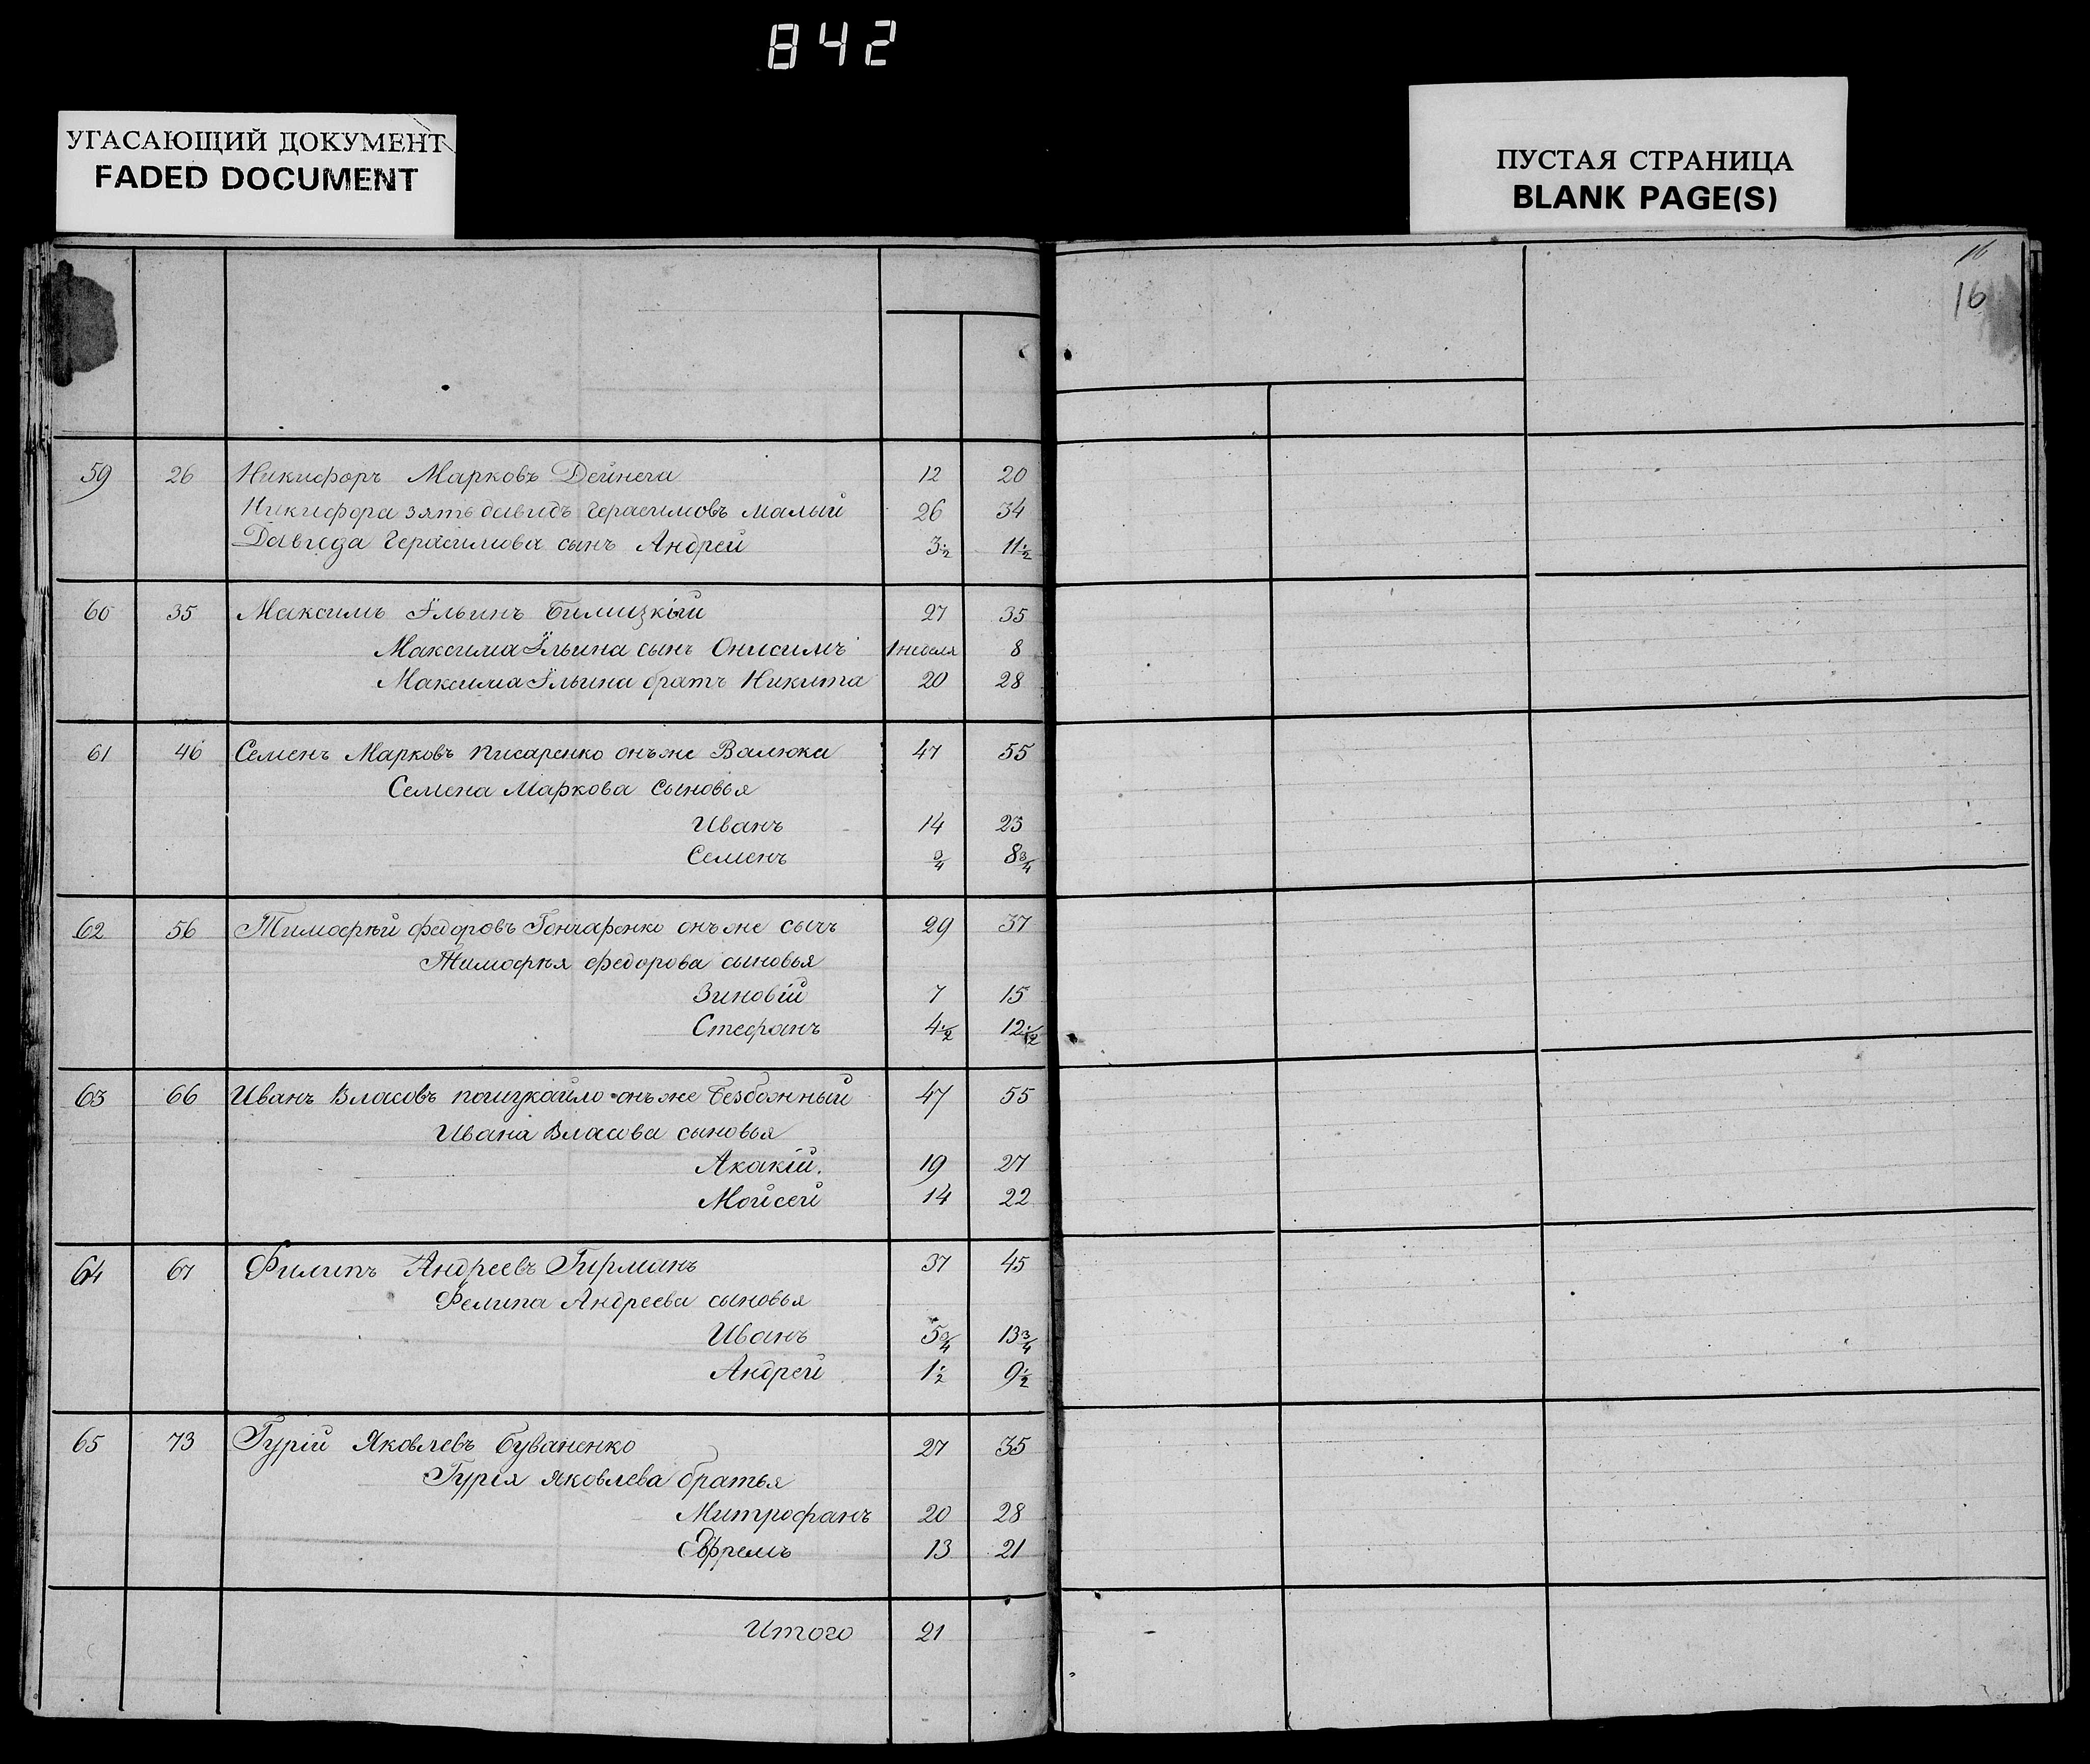 842
УГАСАЮЩИЙ ДОКУМЕНТ
FADED DOCUMENT
ПУСТАЯ СТРАНИЦА
BLANK PAGE(S)
16
16
59 26 Никифоръ Марковъ Дейнега 12 20
Никифора зять давидъ Герасимовъ малый 26 34
Давида Герасимова сынъ Андрей 3½ 11½
60 35 Максимъ Ильинъ Билицкій 27 35
Максима Ильина сынъ Онисимъ 1 неделя 8
Максима Ильина братъ Никита 20 28
61 46 Семенъ Марковъ писаренко онъже Валюка 47 55
Семена Маркова сыновья
Иванъ 14 23
Семенъ ¾ 8¾
62 56 Тимофѣй федоровъ Гончаренко онъже сычъ 29 37
Тимофѣя федорова сыновья
Зиновій 7 15
Стефанъ 4½ 12½
63 66 Иванъ Власовъ онъже Безбожный 47 55
Ивана Власова сыновья
Акакій. 19 27
Мойсей 14 22
64 67 Филипъ Андреевъ Гирманъ 37 45
Фелипа Андреева сыновья
Иванъ 5¾ 13¾
Андрей 1½ 9½
65 73 Гурій Яковлевъ Буваненко 27 35
Гурія яковлева братья
Митрофанъ 20 28
Ефремъ 13 21
Итого 21